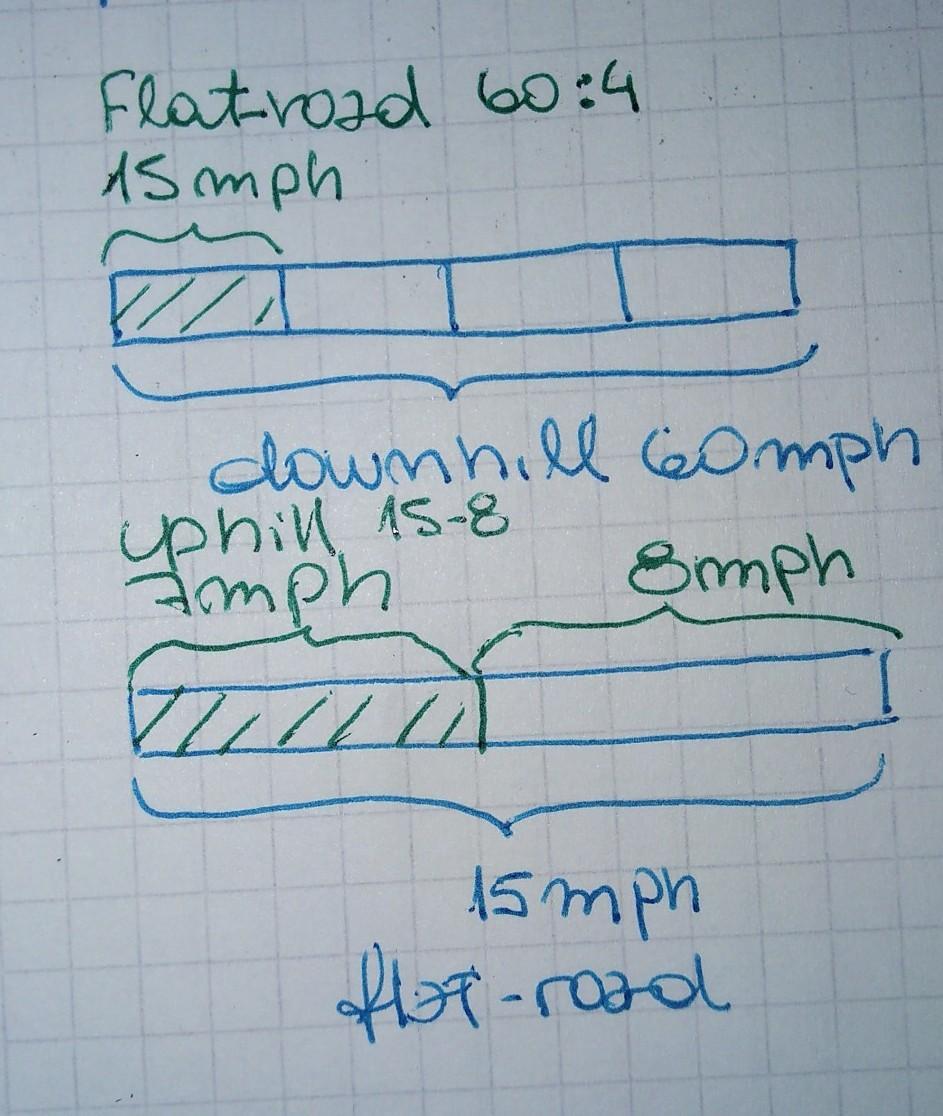 Flat-road 60:4
15mph
downhill 60mph
uphill 15-8
7mph
8mph
15mph
flat-road